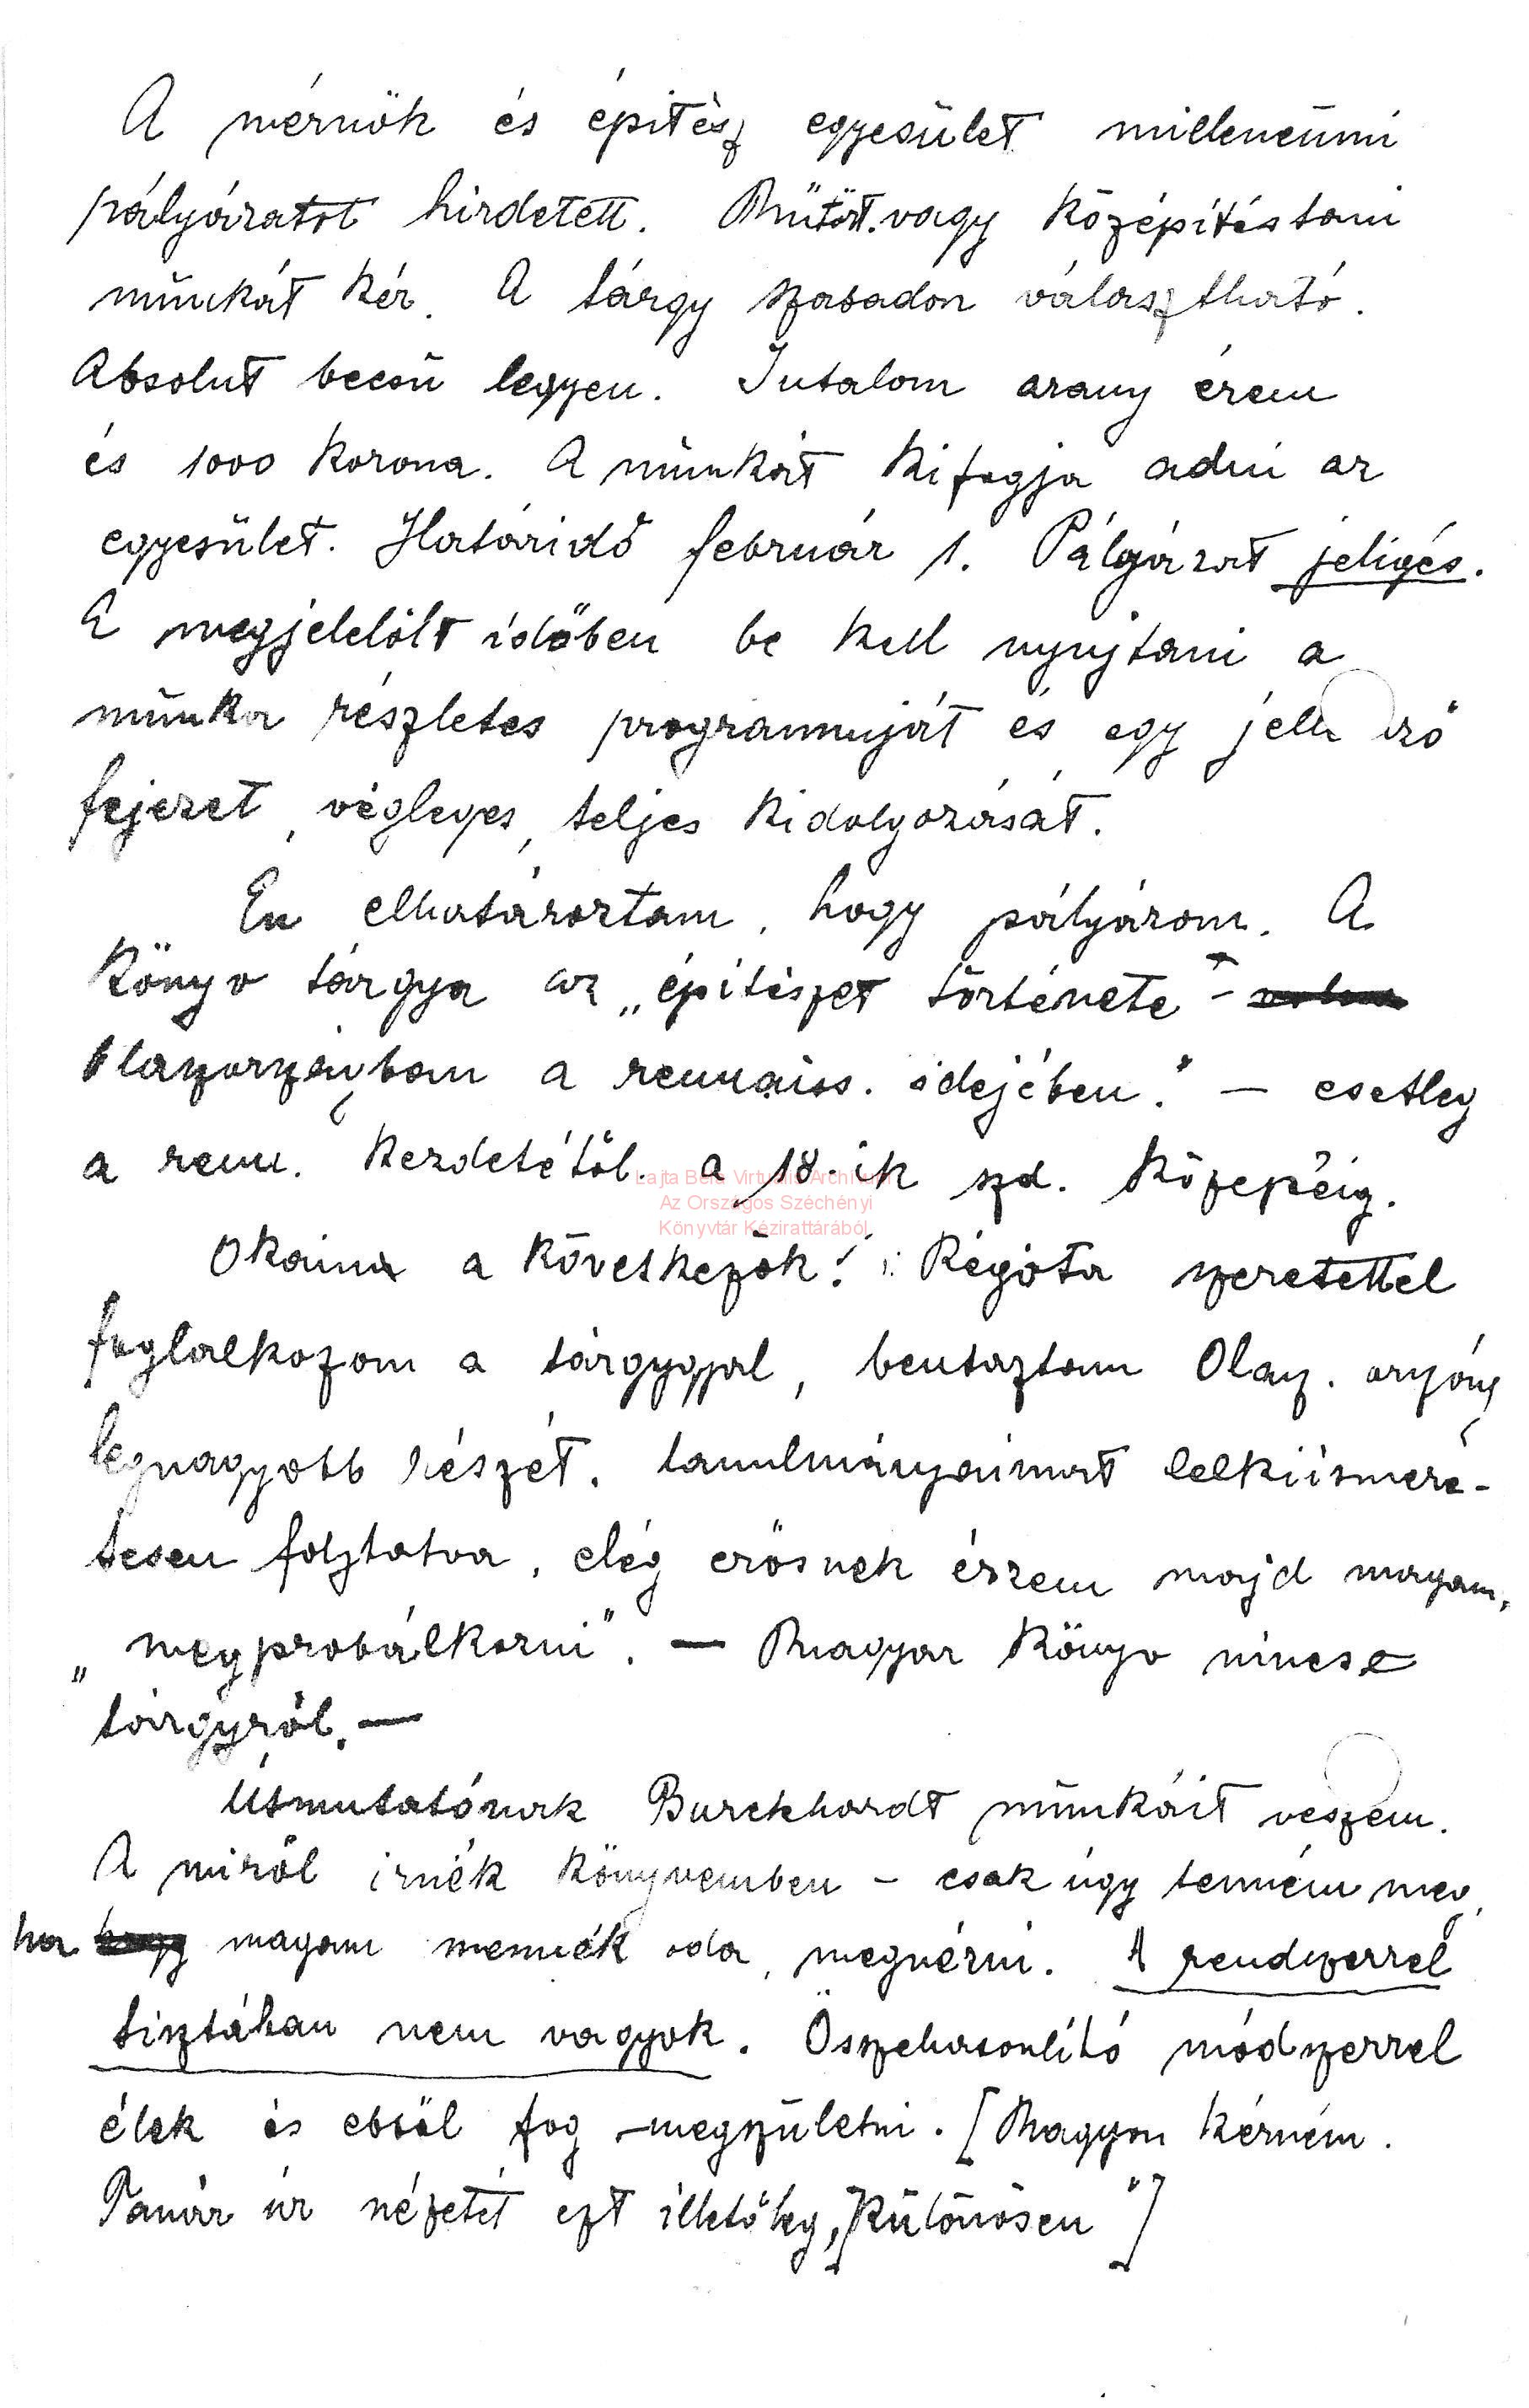 A mérnök és épitész egyesület milleneumi
pályázatot hirdetett. Műtört. vagy középítéstani
munkát kér. A tárgy szabadon választható.
Absolut becsű legyen. Jutalom arany érem
és 1000 korona. A munkát ki fogja adni az
egyesület. Határidő február 1. Pályázat jeligés.
A megjelölt időben be kell nyujtani a
munka részletes programmját és egy jellemző
fejezet, végleges, teljes kidolgozását.
Én elhatároztam, hogy pályázom. A
könyv tárgya az „építészet története -
Olaszországban a rennaiss. idejében." - esetleg
a renn. kezdetétől a 18-ik szd. közepéig.
Lajta Béla Virtuális Archívum
Az Országos Széchényi
Könyvtár Kézirattárából
Okaim a következők: Régóta szeretettel
foglalkozom a tárgygyal, beutaztam Olasz. ország
legnagyobb részét. Tanulmányaimat lelkiismere-
tesen folytatva, elég erősnek érzem majd magam,
„megprobálkozni". — Magyar könyv nincs e
tárgyról. —
Útmutatónak Burckhardt munkáit veszem.
A miről irnék könyvemben - csak úgy tenném meg,
ha magam mennék oda, megnézni. A rendszerrel
tisztában nem vagyok. Összehasonlító módszerrel
élek és ebből fog megszületni. [Nagyon kérném
Tanár úr nézetét ezt illetőleg, „különösen"]